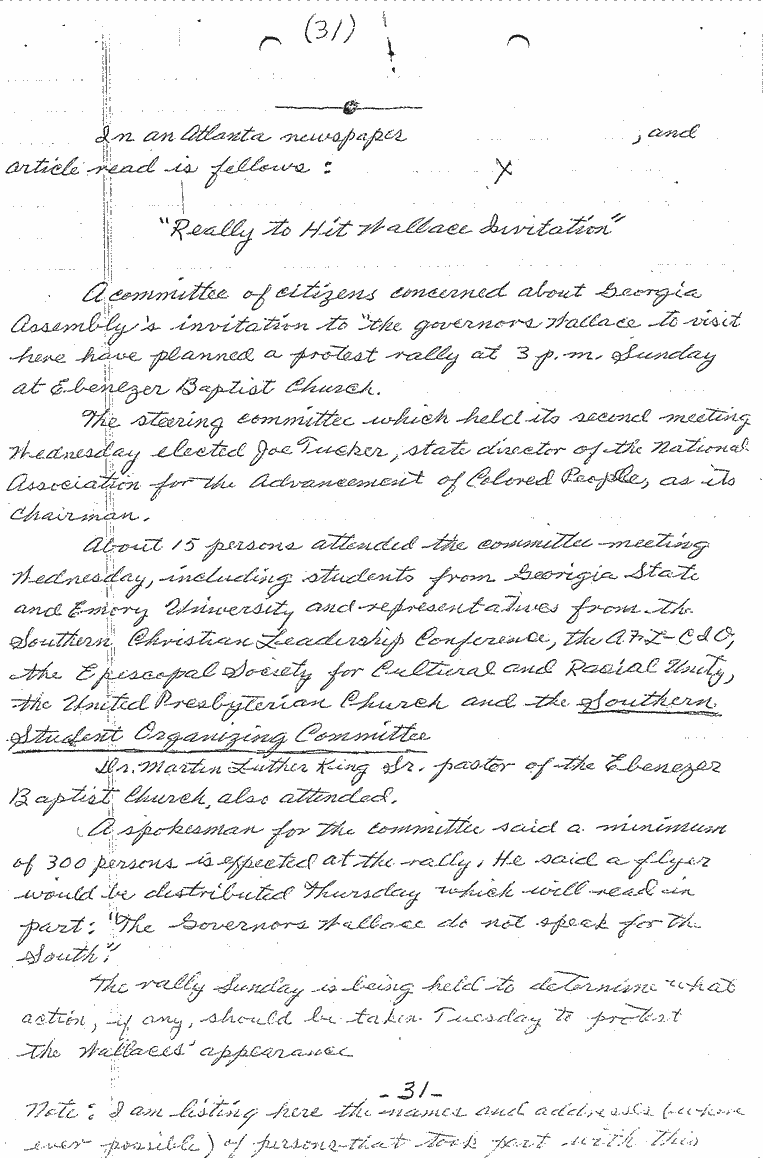 (31)
In an Atlanta newspaper , and
article read is fellows :
X
"Really to Hit Wallace Invitation"
A committee of citizens concerned about Georgia
Assembly's invitation to "the governors Wallace to visit
here have planned a protest rally at 3 p.m. Sunday
at Ebenezer Baptist Church.
The steering committee which held its second meeting
Wednesday elected Joe Tucker, state director of the National
Association for the Advancement of Colored People, as its
Chairman.
About 15 persons attended the committee meeting
Wednesday, including students from Georigia State
and Emory University and representatives from the
Southern Christian Leadership Conference, the AFL-CIO,
the Episcopal Society for Cultural and Racial Unity,
the United Presbyterian Church and the Southern
Student Organizing Committee
Dr. Martin Luther King Sr. pastor of the Ebenezer
Baptist Church, also attended.
A spokesman for the committee said a minimum
of 300 persons is expected at the rally. He said a flyer
would be distributed Thursday which will read in
part: "The Governors Wallace do not speak for the
South".
The rally Sunday is being held to determine what
action, if any, should be taken Tuesday to protest
the Wallaces' appearance
-31-
Note: I am listing here the names and addresses (where
ever possible) of persons that took part with this